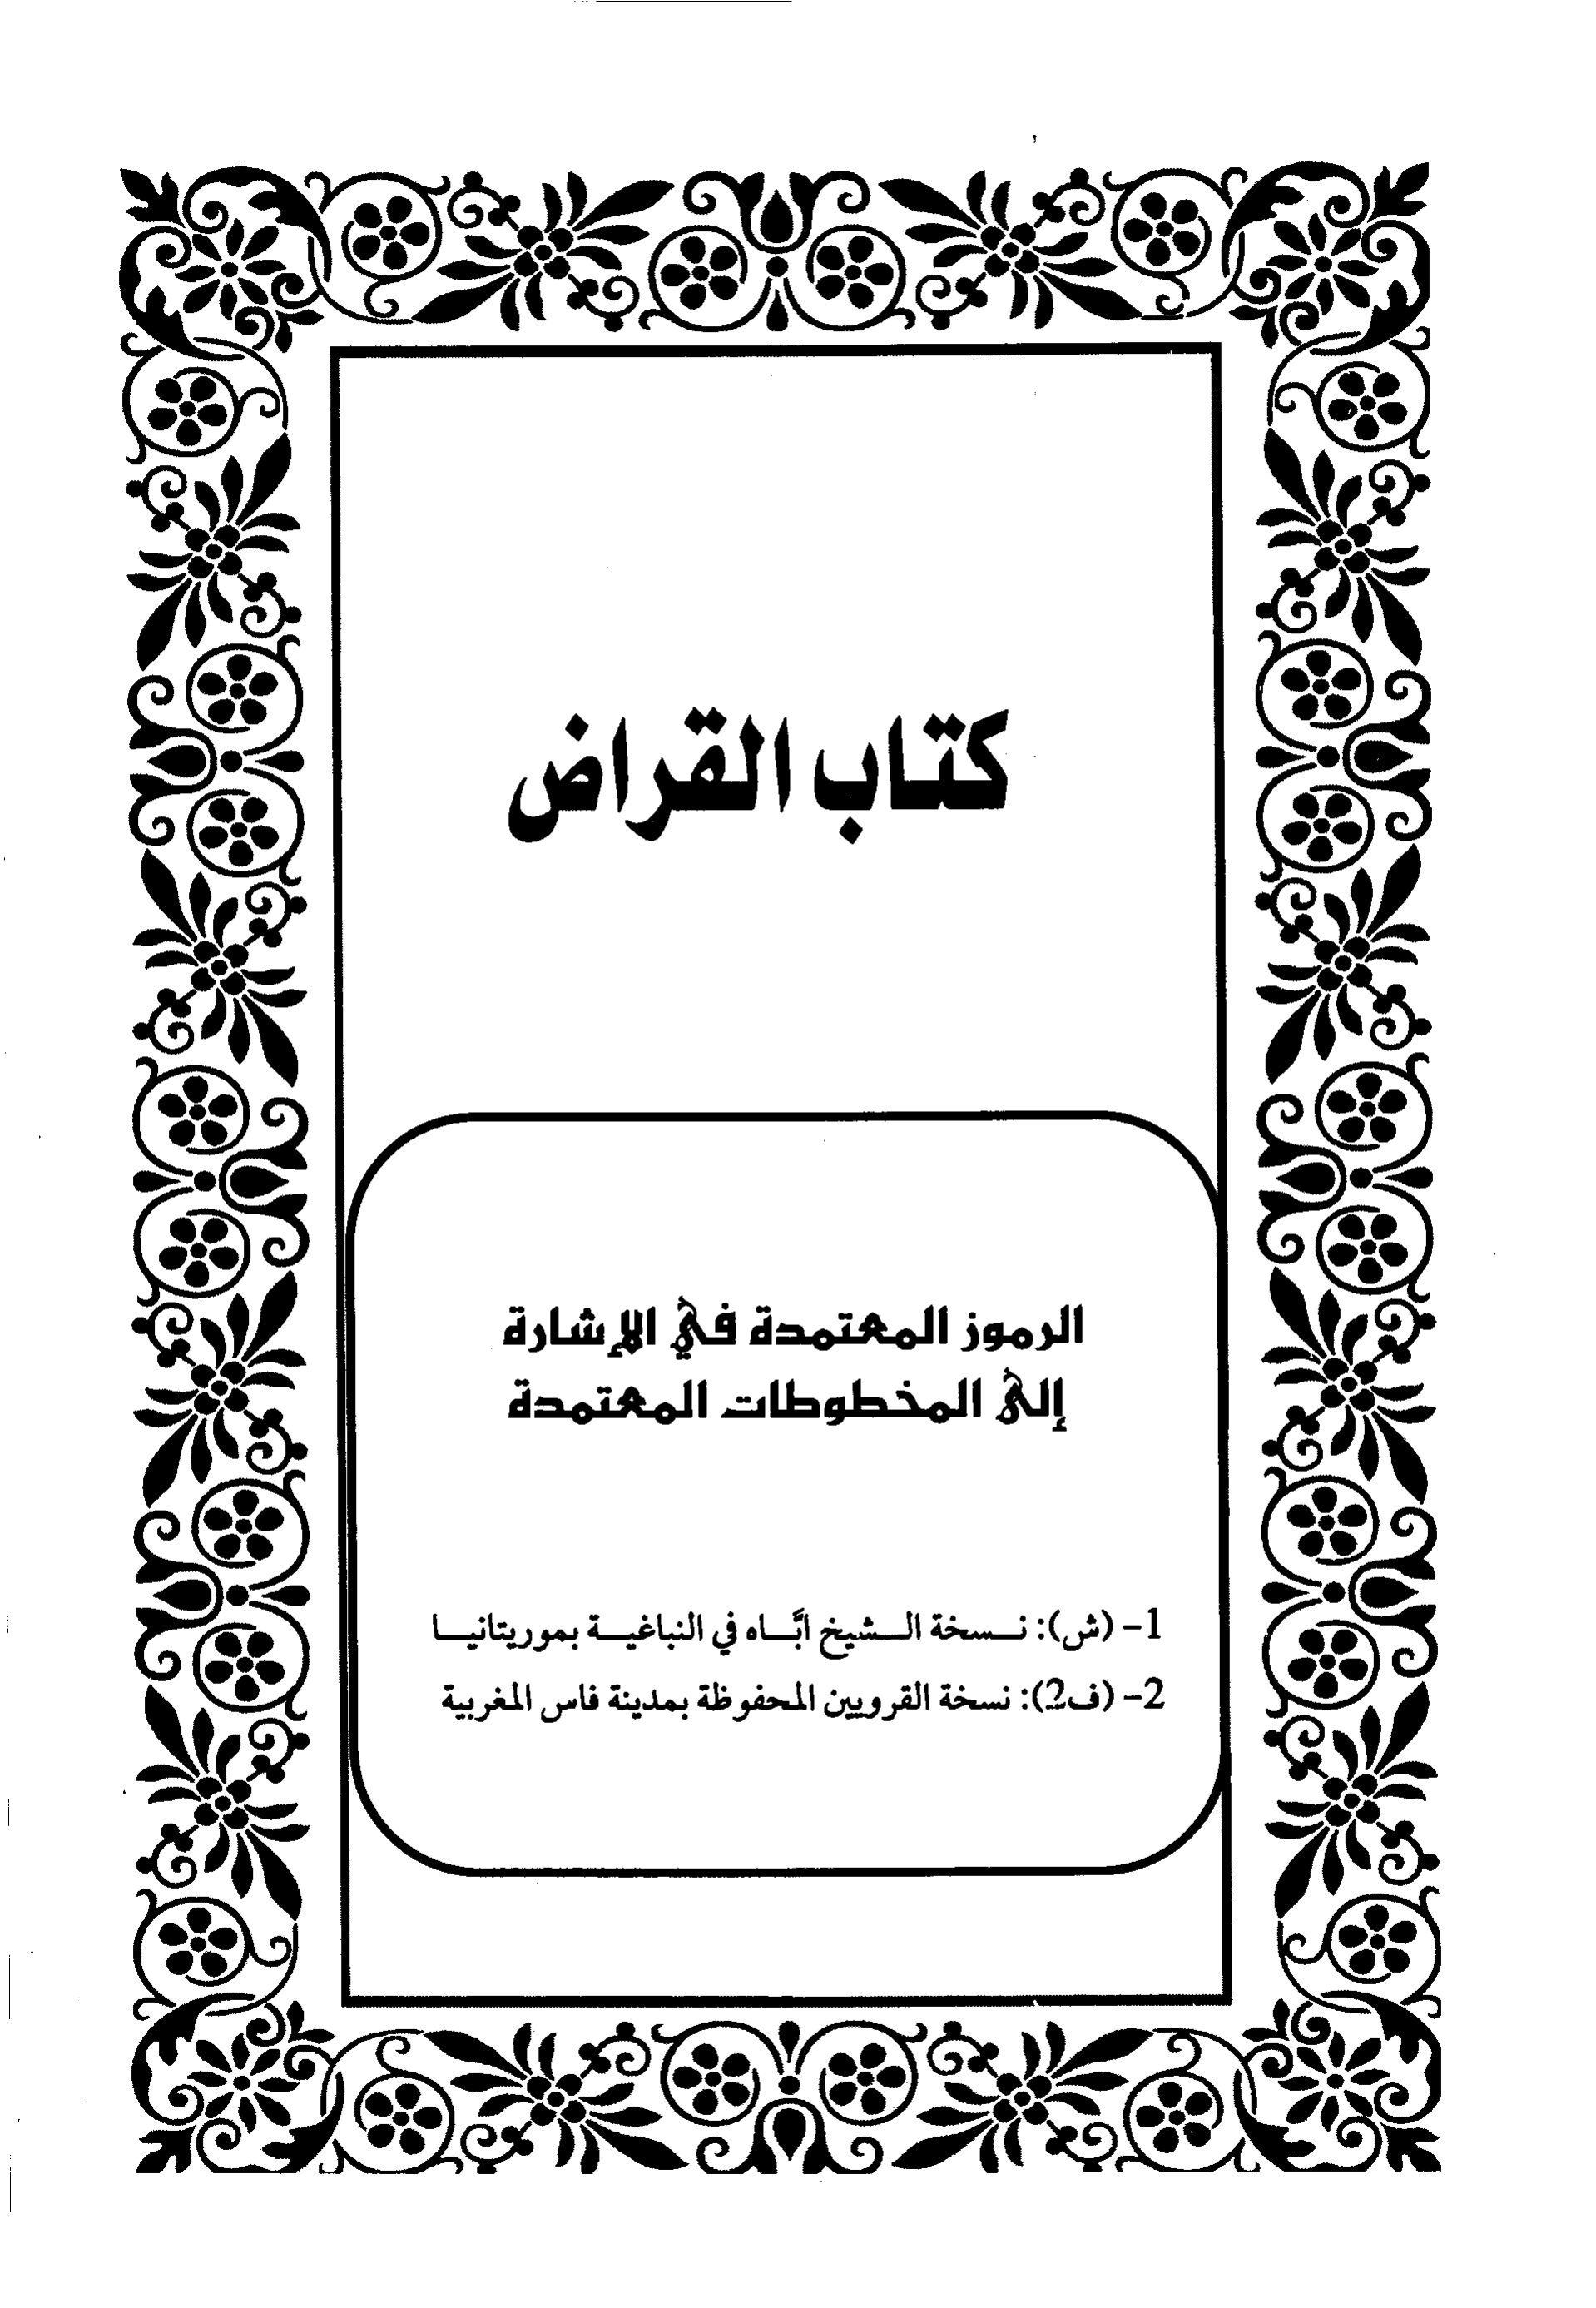 كتاب القراض
الرموز المعتمدة في الإشارة
إلى المخطوطات المعتمدة
1- (ش): نسخة الشيخ ابَّاه في النباغية بموريتانيا
2- (ف2): نسخة القرويين المحفوظة بمدينة فاس المغربية